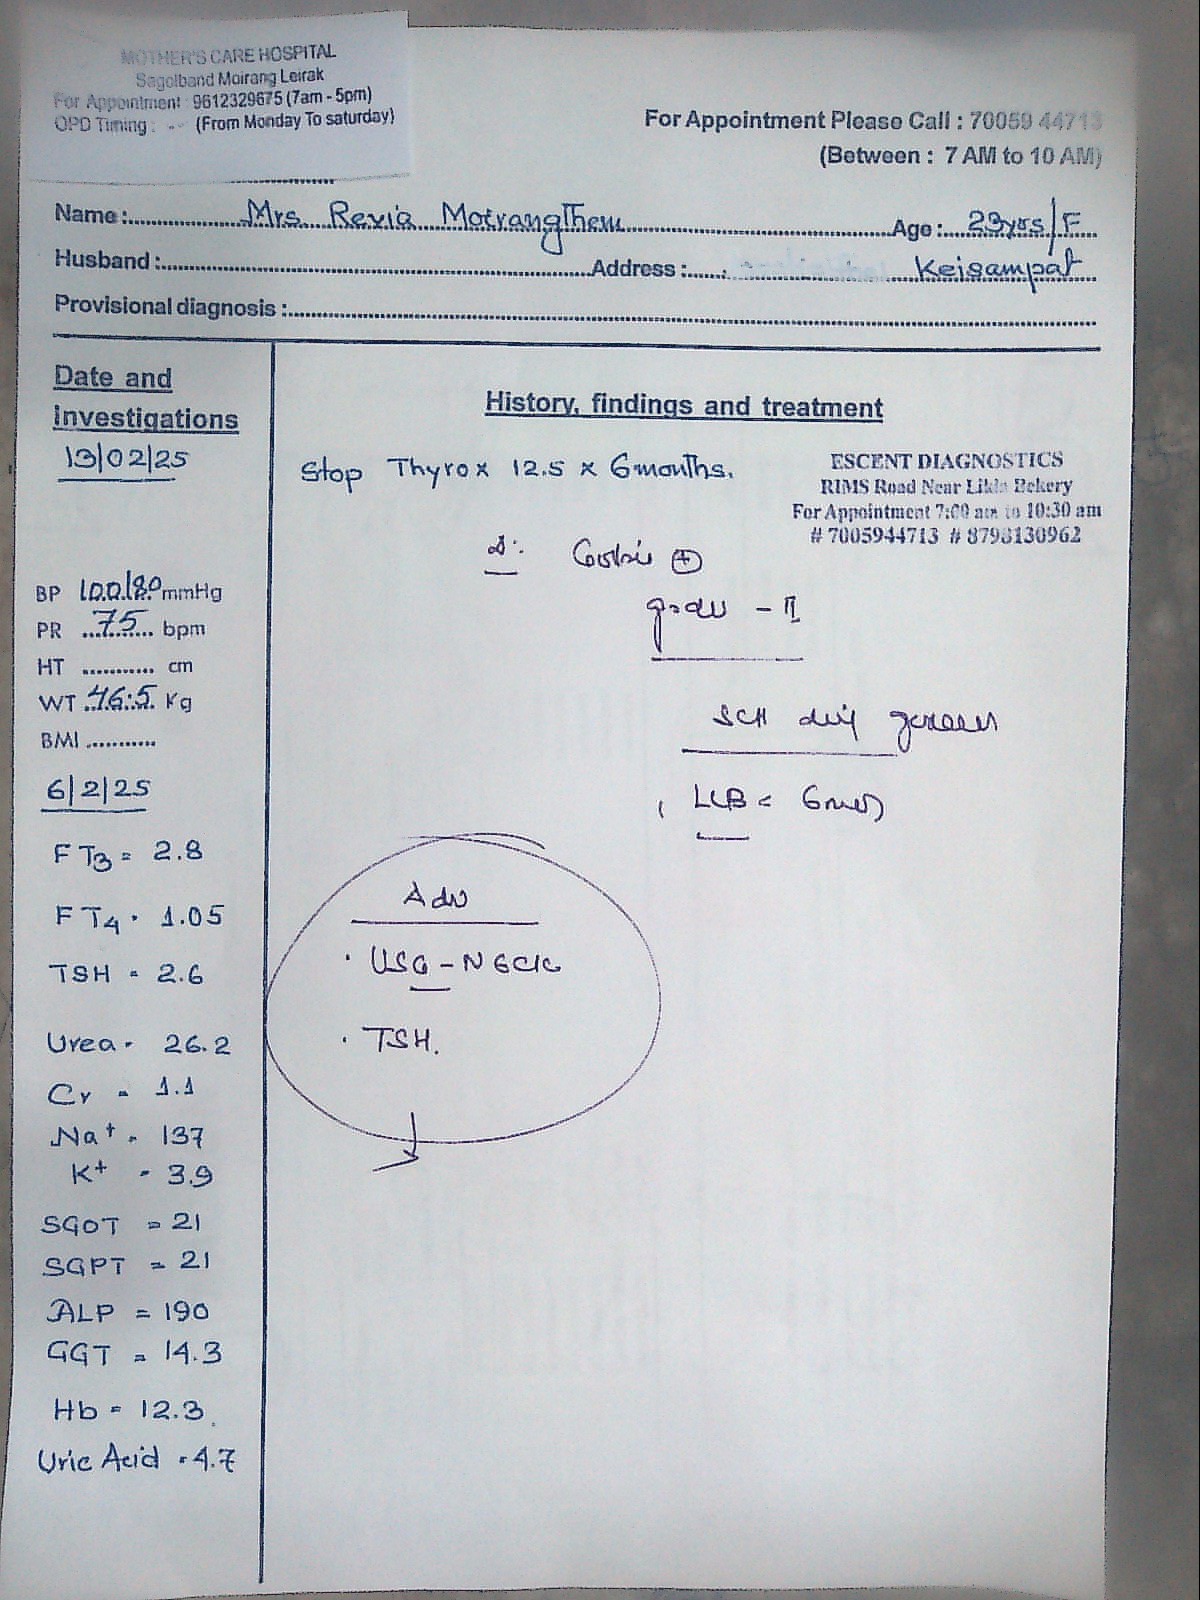 MOTHER'S CARE HOSPITAL
Sagolband Moirang Leirak
For Appointment : 9612329675 (7am - 5pm)
OPD Timing : (From Monday To saturday)
For Appointment Please Call : 70059 44713
(Between : 7 AM to 10 AM)
Name : Mrs. Rexia Moirangthem Age : 23yrs/F
Husband : Address : Keisampat
Provisional diagnosis :
Date and
investigations
13/02/25
BP 100/80 mmHg
PR 75 bpm
HT cm
WT 46.5 Kg
BMI
6/2/25
FT3 = 2.8
FT4 . 1.05
TSH = 2.6
Urea - 26.2
Cr = 1.1
Na+ = 137
K+ - 3.9
SGOT = 21
SGPT = 21
ALP = 190
GGT = 14.3
Hb = 12.3
Uric Acid = 4.7
History, findings and treatment
Stop Thyrox 12.5 x 6months.
ESCENT DIAGNOSTICS
RIMS Road Near Likla Bekery
For Appointment 7:00 am to 10:30 am
# 7005944713 # 8798130962
+
- II
SCH
LCB =
Adv
. USG - Neck
. TSH.